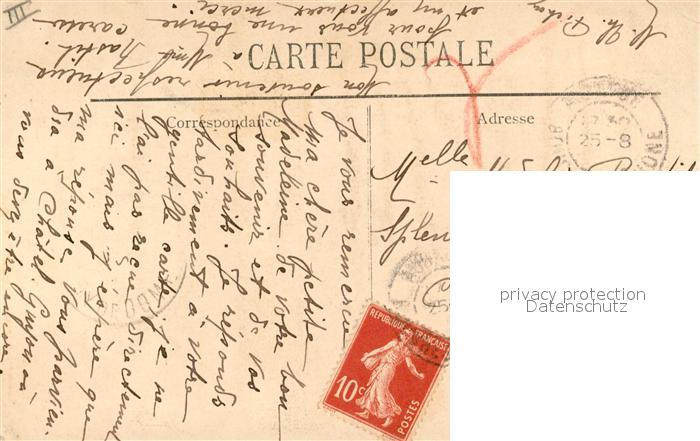 III
CARTE POSTALE
Correspondance
Adresse
Je vous remercie
ma chère petite
Madeleine de votre bon
souvenir et de vos
souhaits. Je réponds
tardivement à votre
gentille carte je ne
l'ai pas reçue directement
ici mais j'espère que
ma réponse vous parvien-
dra à Châtel Guyon où
vous devez être encore.
Mon souvenir respectueux
à Mme
Pour vous une bonne caresse
et my affectueux merci
M. Th.
Melle
Splen
25-8
RHONE
REPUBLIQUE FRANÇAISE
10c
POSTES
privacy protection
Datenschutz